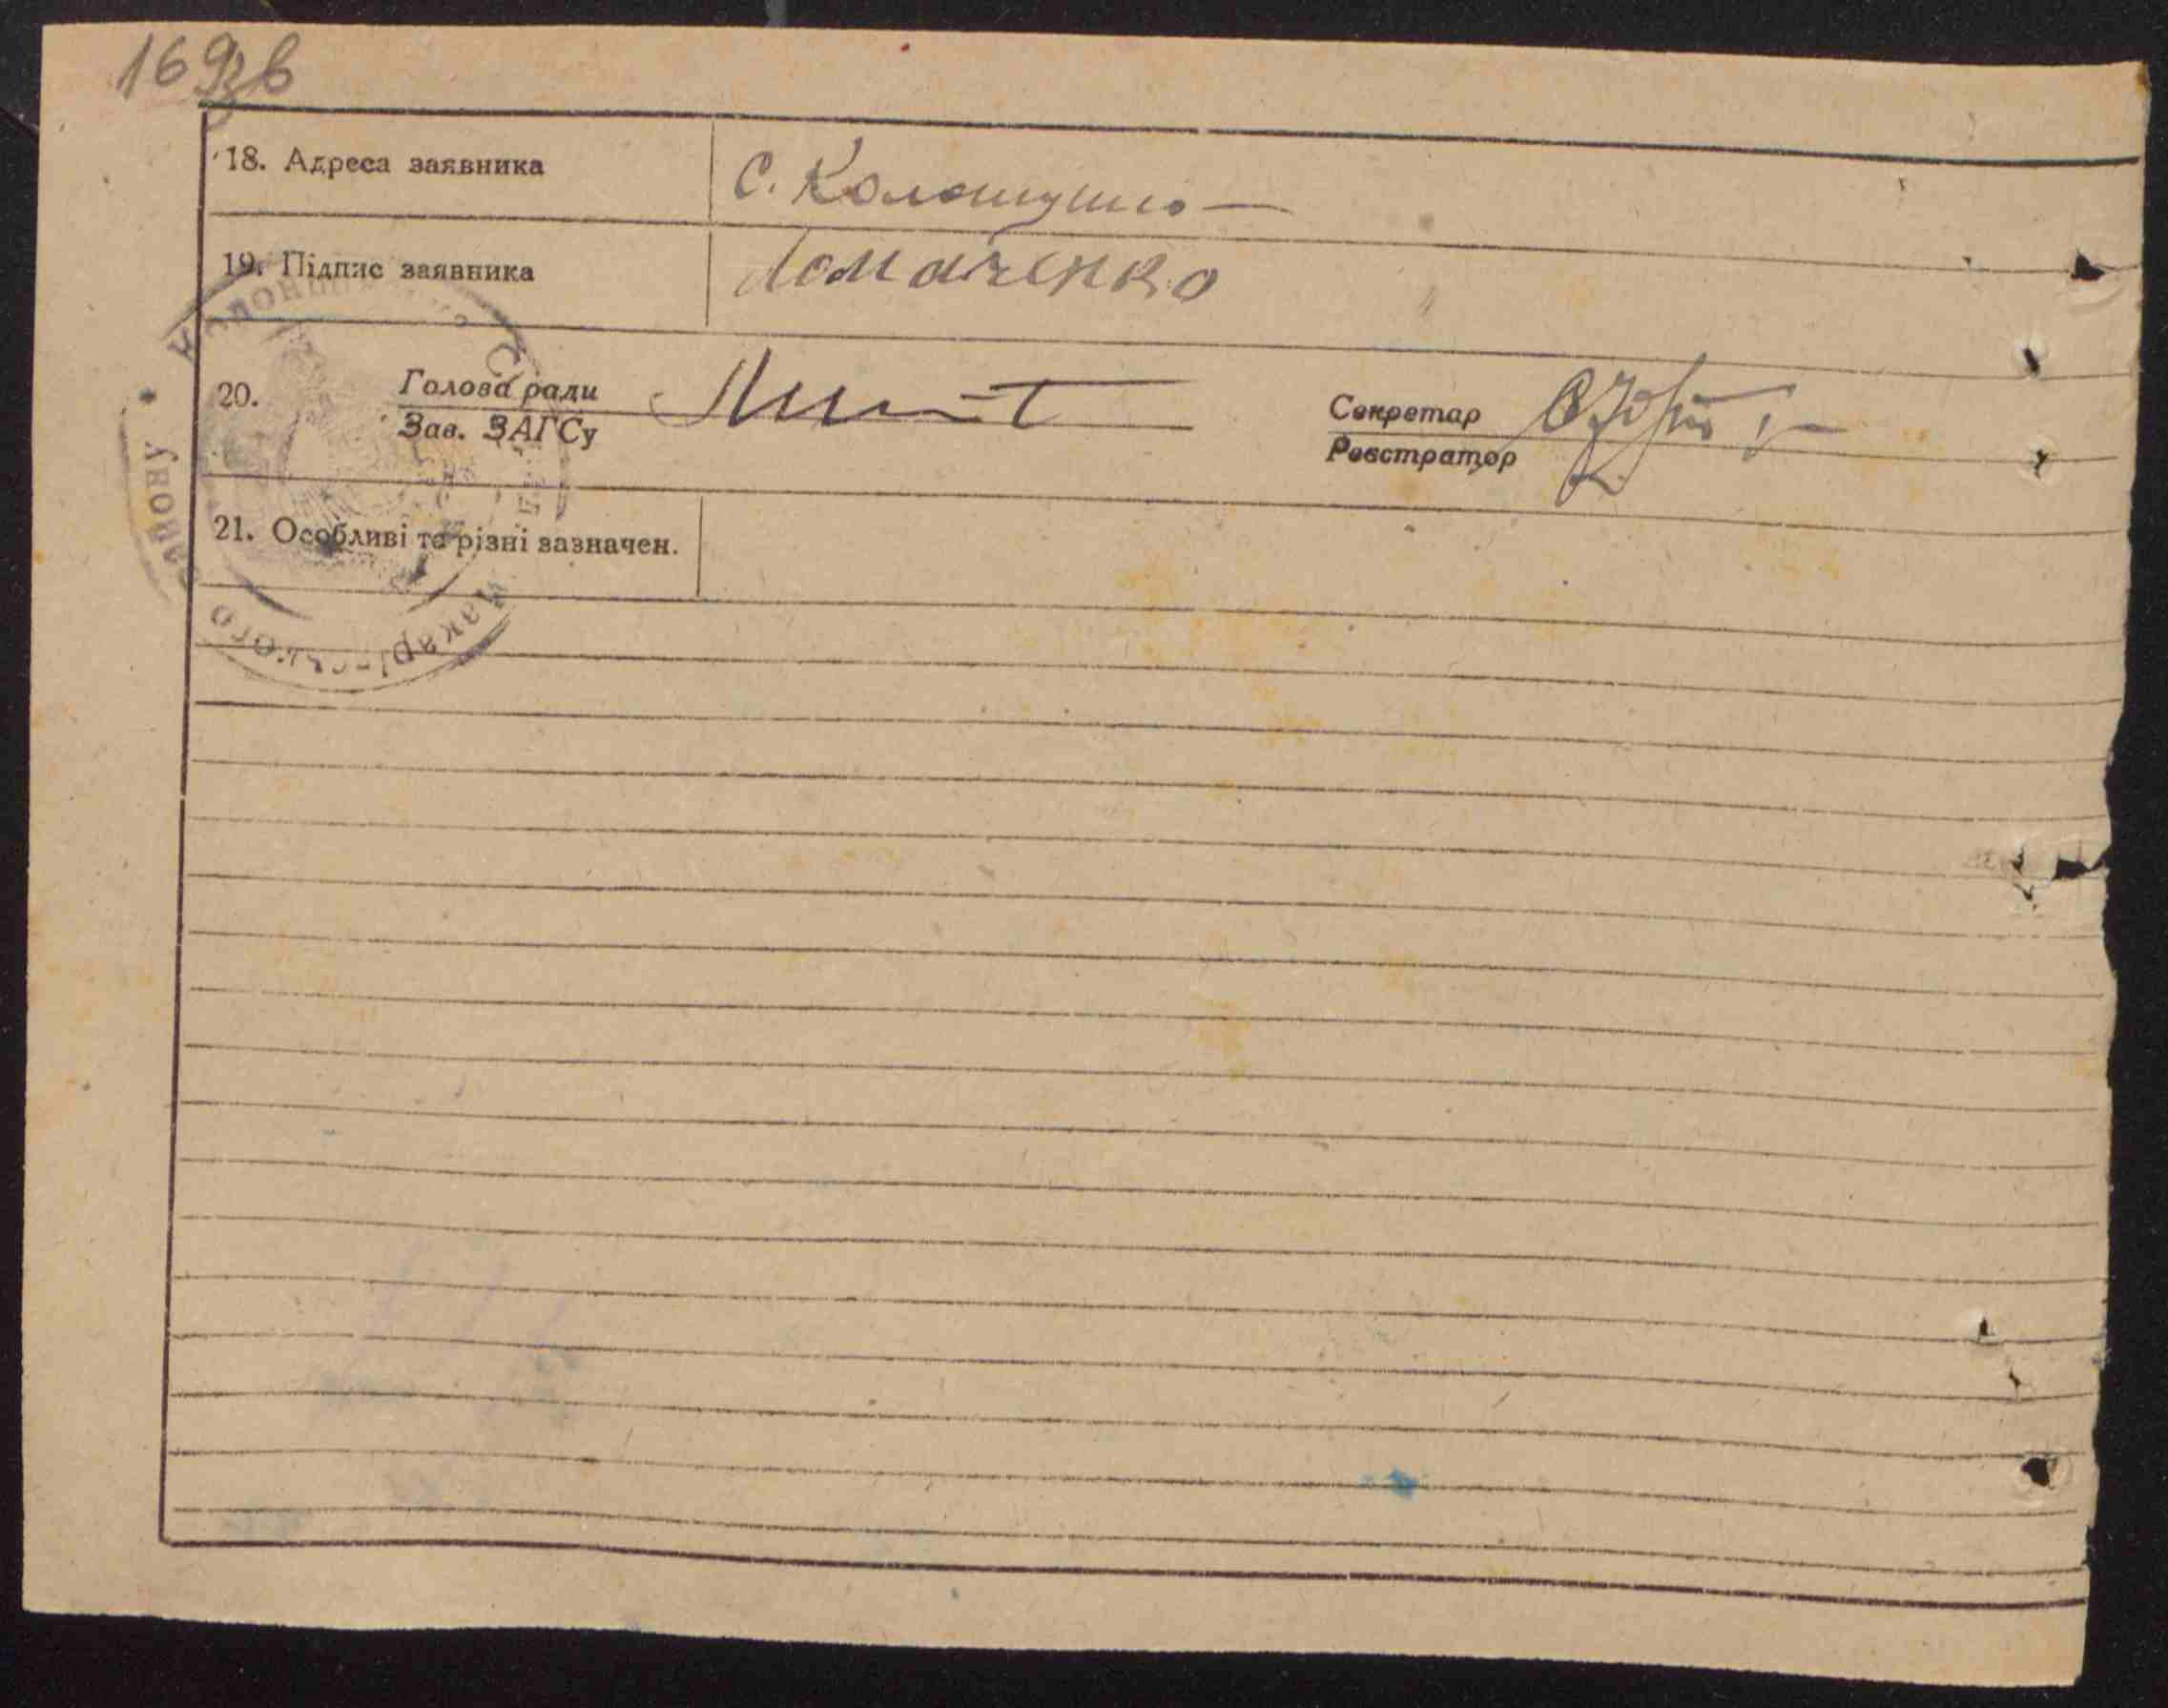 169зв
18. Адреса заявника
с. Колонщина
19. Підпис заявника
Ломаченко
20. Голова ради
Зав. ЗАГСу
Секретар
Реєстратор
21. Особливі та різні зазначен.
Макарівського району